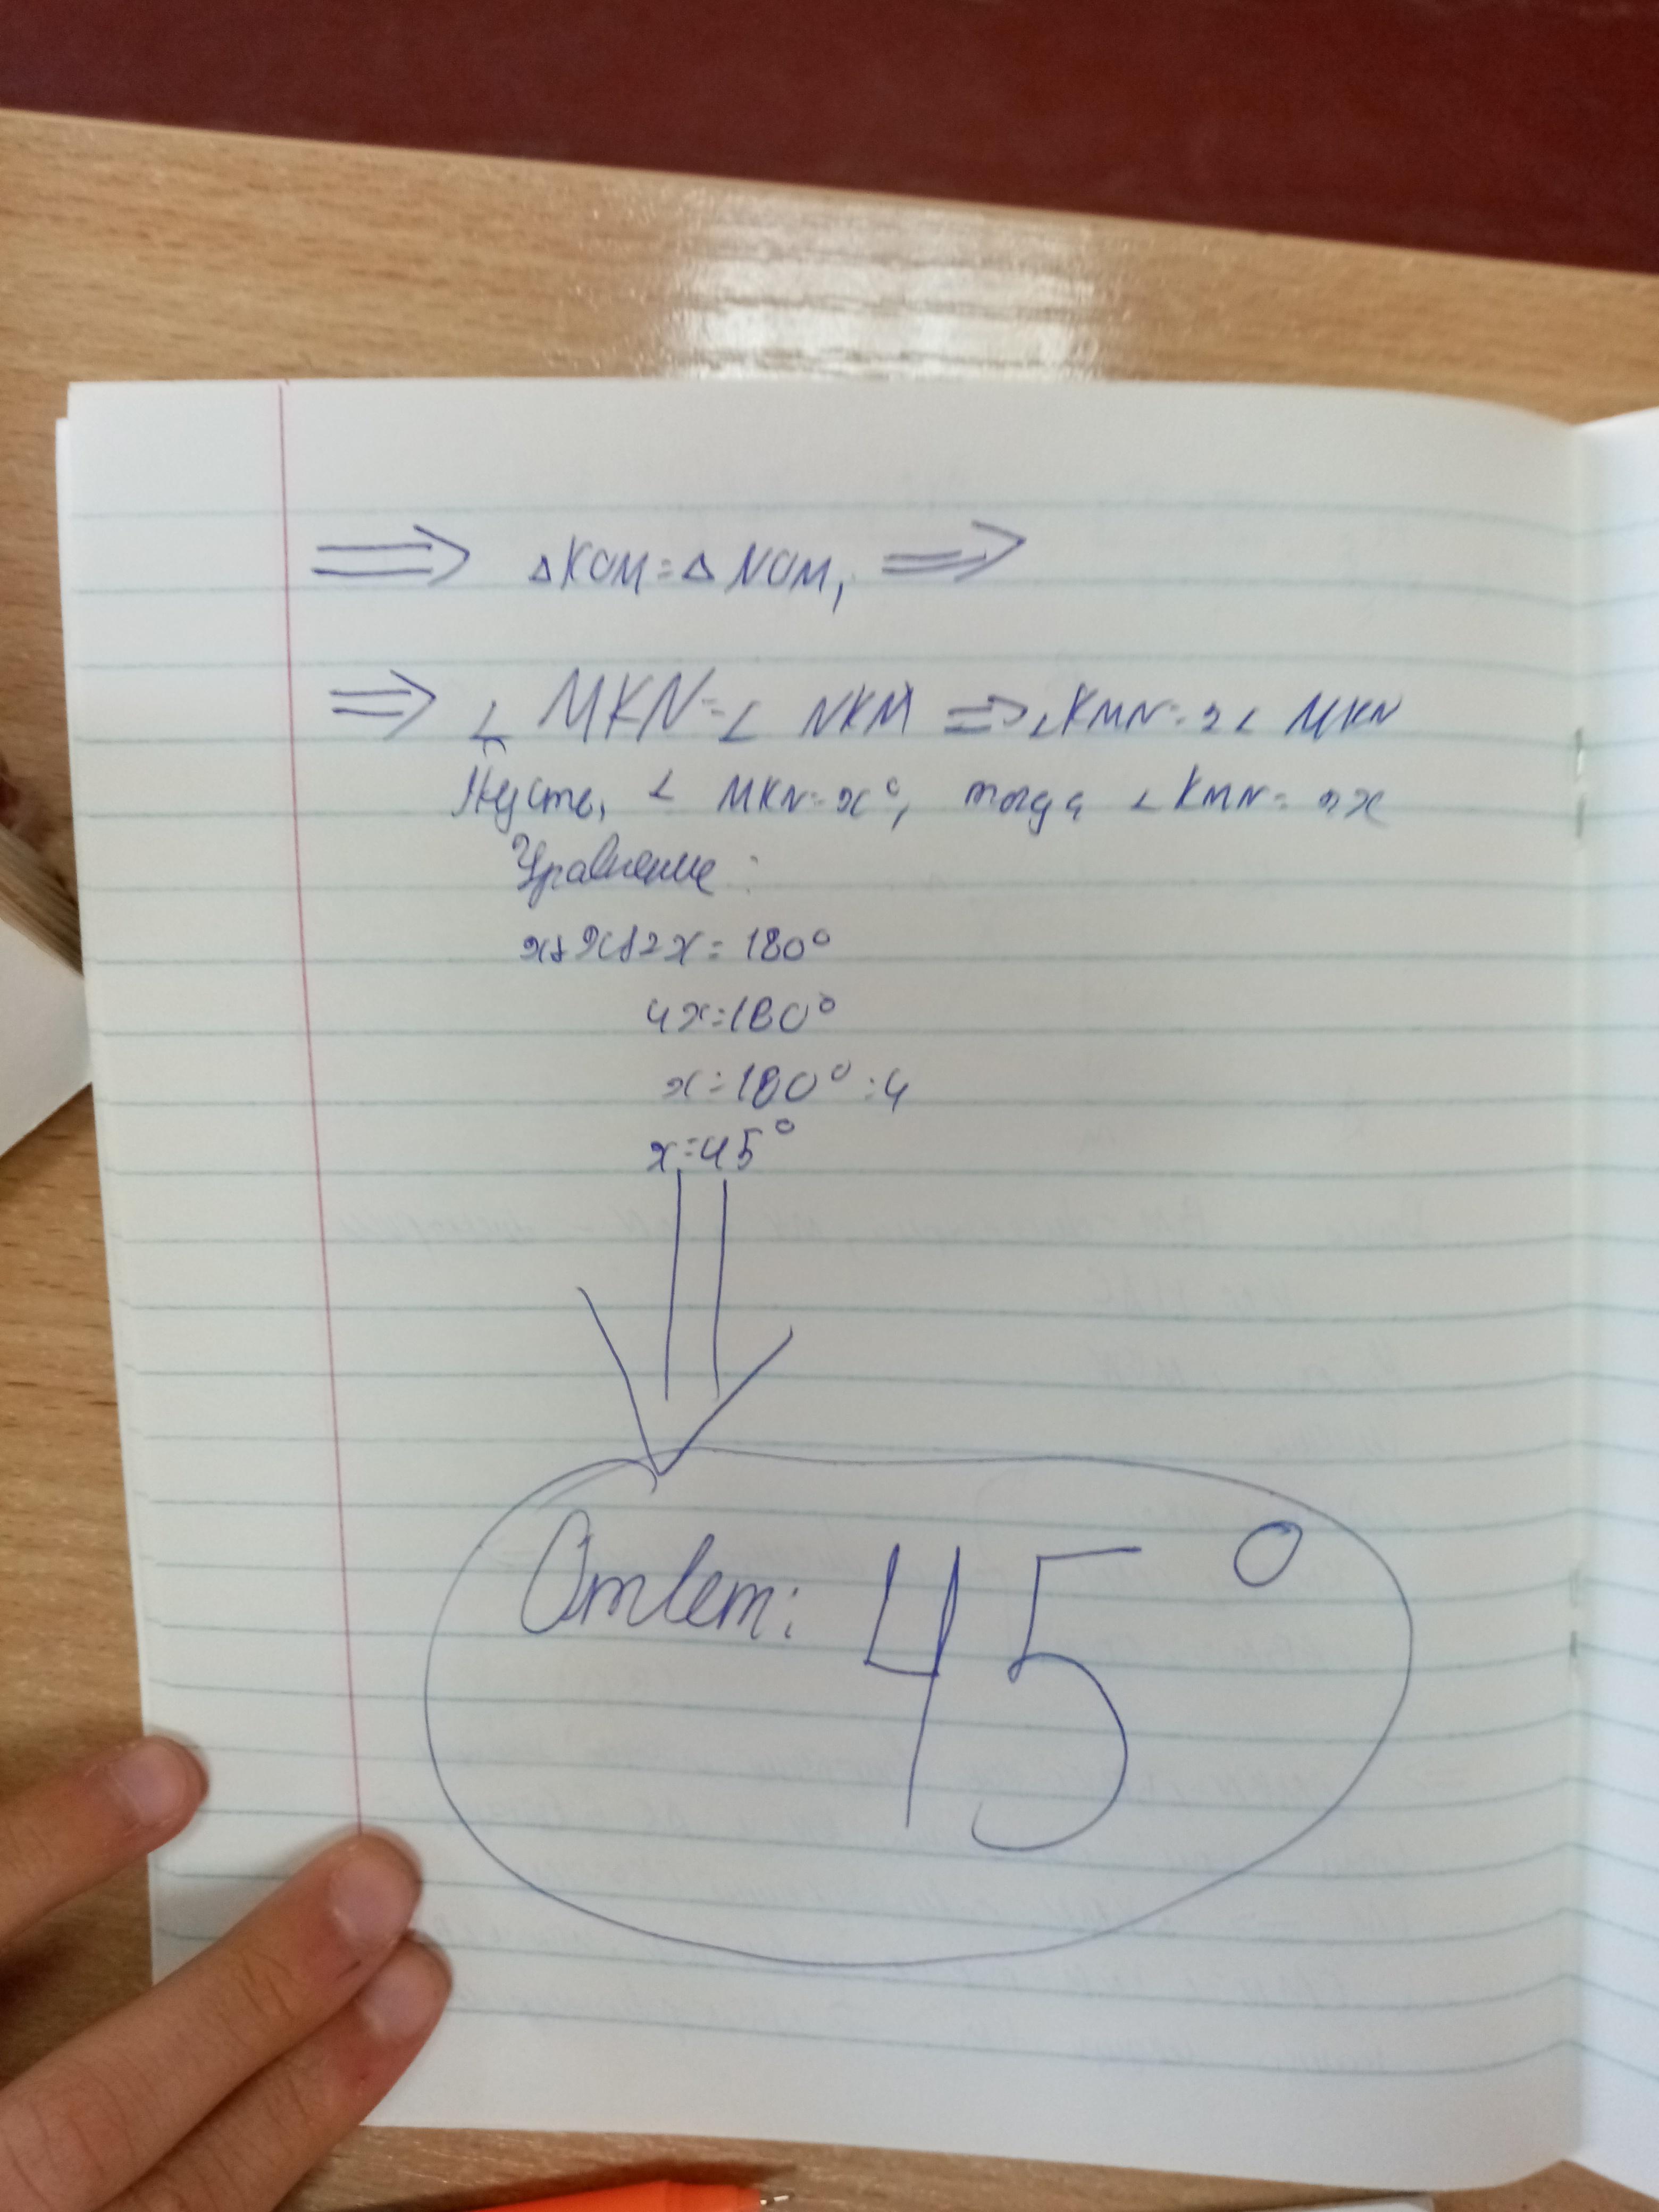 ⟹ △KOM=△NOM, ⟹
⟹ ∠MKN=∠NKM ⟹ ∠KMN=2∠MKN
Пусть, ∠MKN=x°, тогда ∠KMN=2x
Уравнение:
x+x+2x=180°
4x=180°
x=180°:4
x=45°
Ответ: 45°